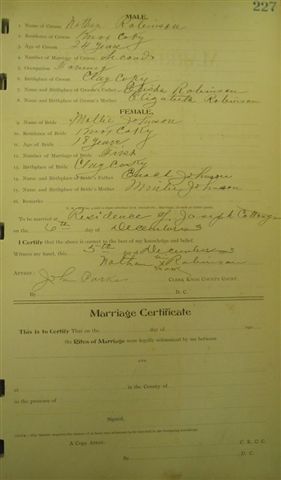 227
MALE.
1. Name of Groom Nathan Robinson
2. Residence of Groom Knox Co Ky
3. Age of Groom 24 years
4. Number of Marriage of Groom Second
5. Occupation Farming
6. Birthplace of Groom Clay Co Ky
7. Name and Birthplace of Groom's Father Robinson
8. Name and Birthplace of Groom's Mother Elizabeth Robinson
FEMALE.
9. Name of Bride Mollie Johnson
10. Residence of Bride Knox Co Ky
11. Age of Bride 18 years
12. Number of Marriage of Bride First
13. Birthplace of Bride Clay Co Ky
14. Name and Birthplace of Bride's Father Johnson
15. Name and Birthplace of Bride's Mother Johnson
16. Remarks
To be married at Residence of Joseph
on the 6th day of December
I Certify that the above is correct to the best of my knowledge and belief.
Witness my hand, this 5th day of December
Nathan X Robinson
mark
Attest: CLERK KNOX COUNTY COURT.
John Parker
By D. C.
Marriage Certificate
This is to Certify That on the day of
the Rites of Marriage were legally solemnized by me between
AND
at in the County of
in the presence of
Signed,
A Copy Attest: C. K. C. C.
By , D. C.